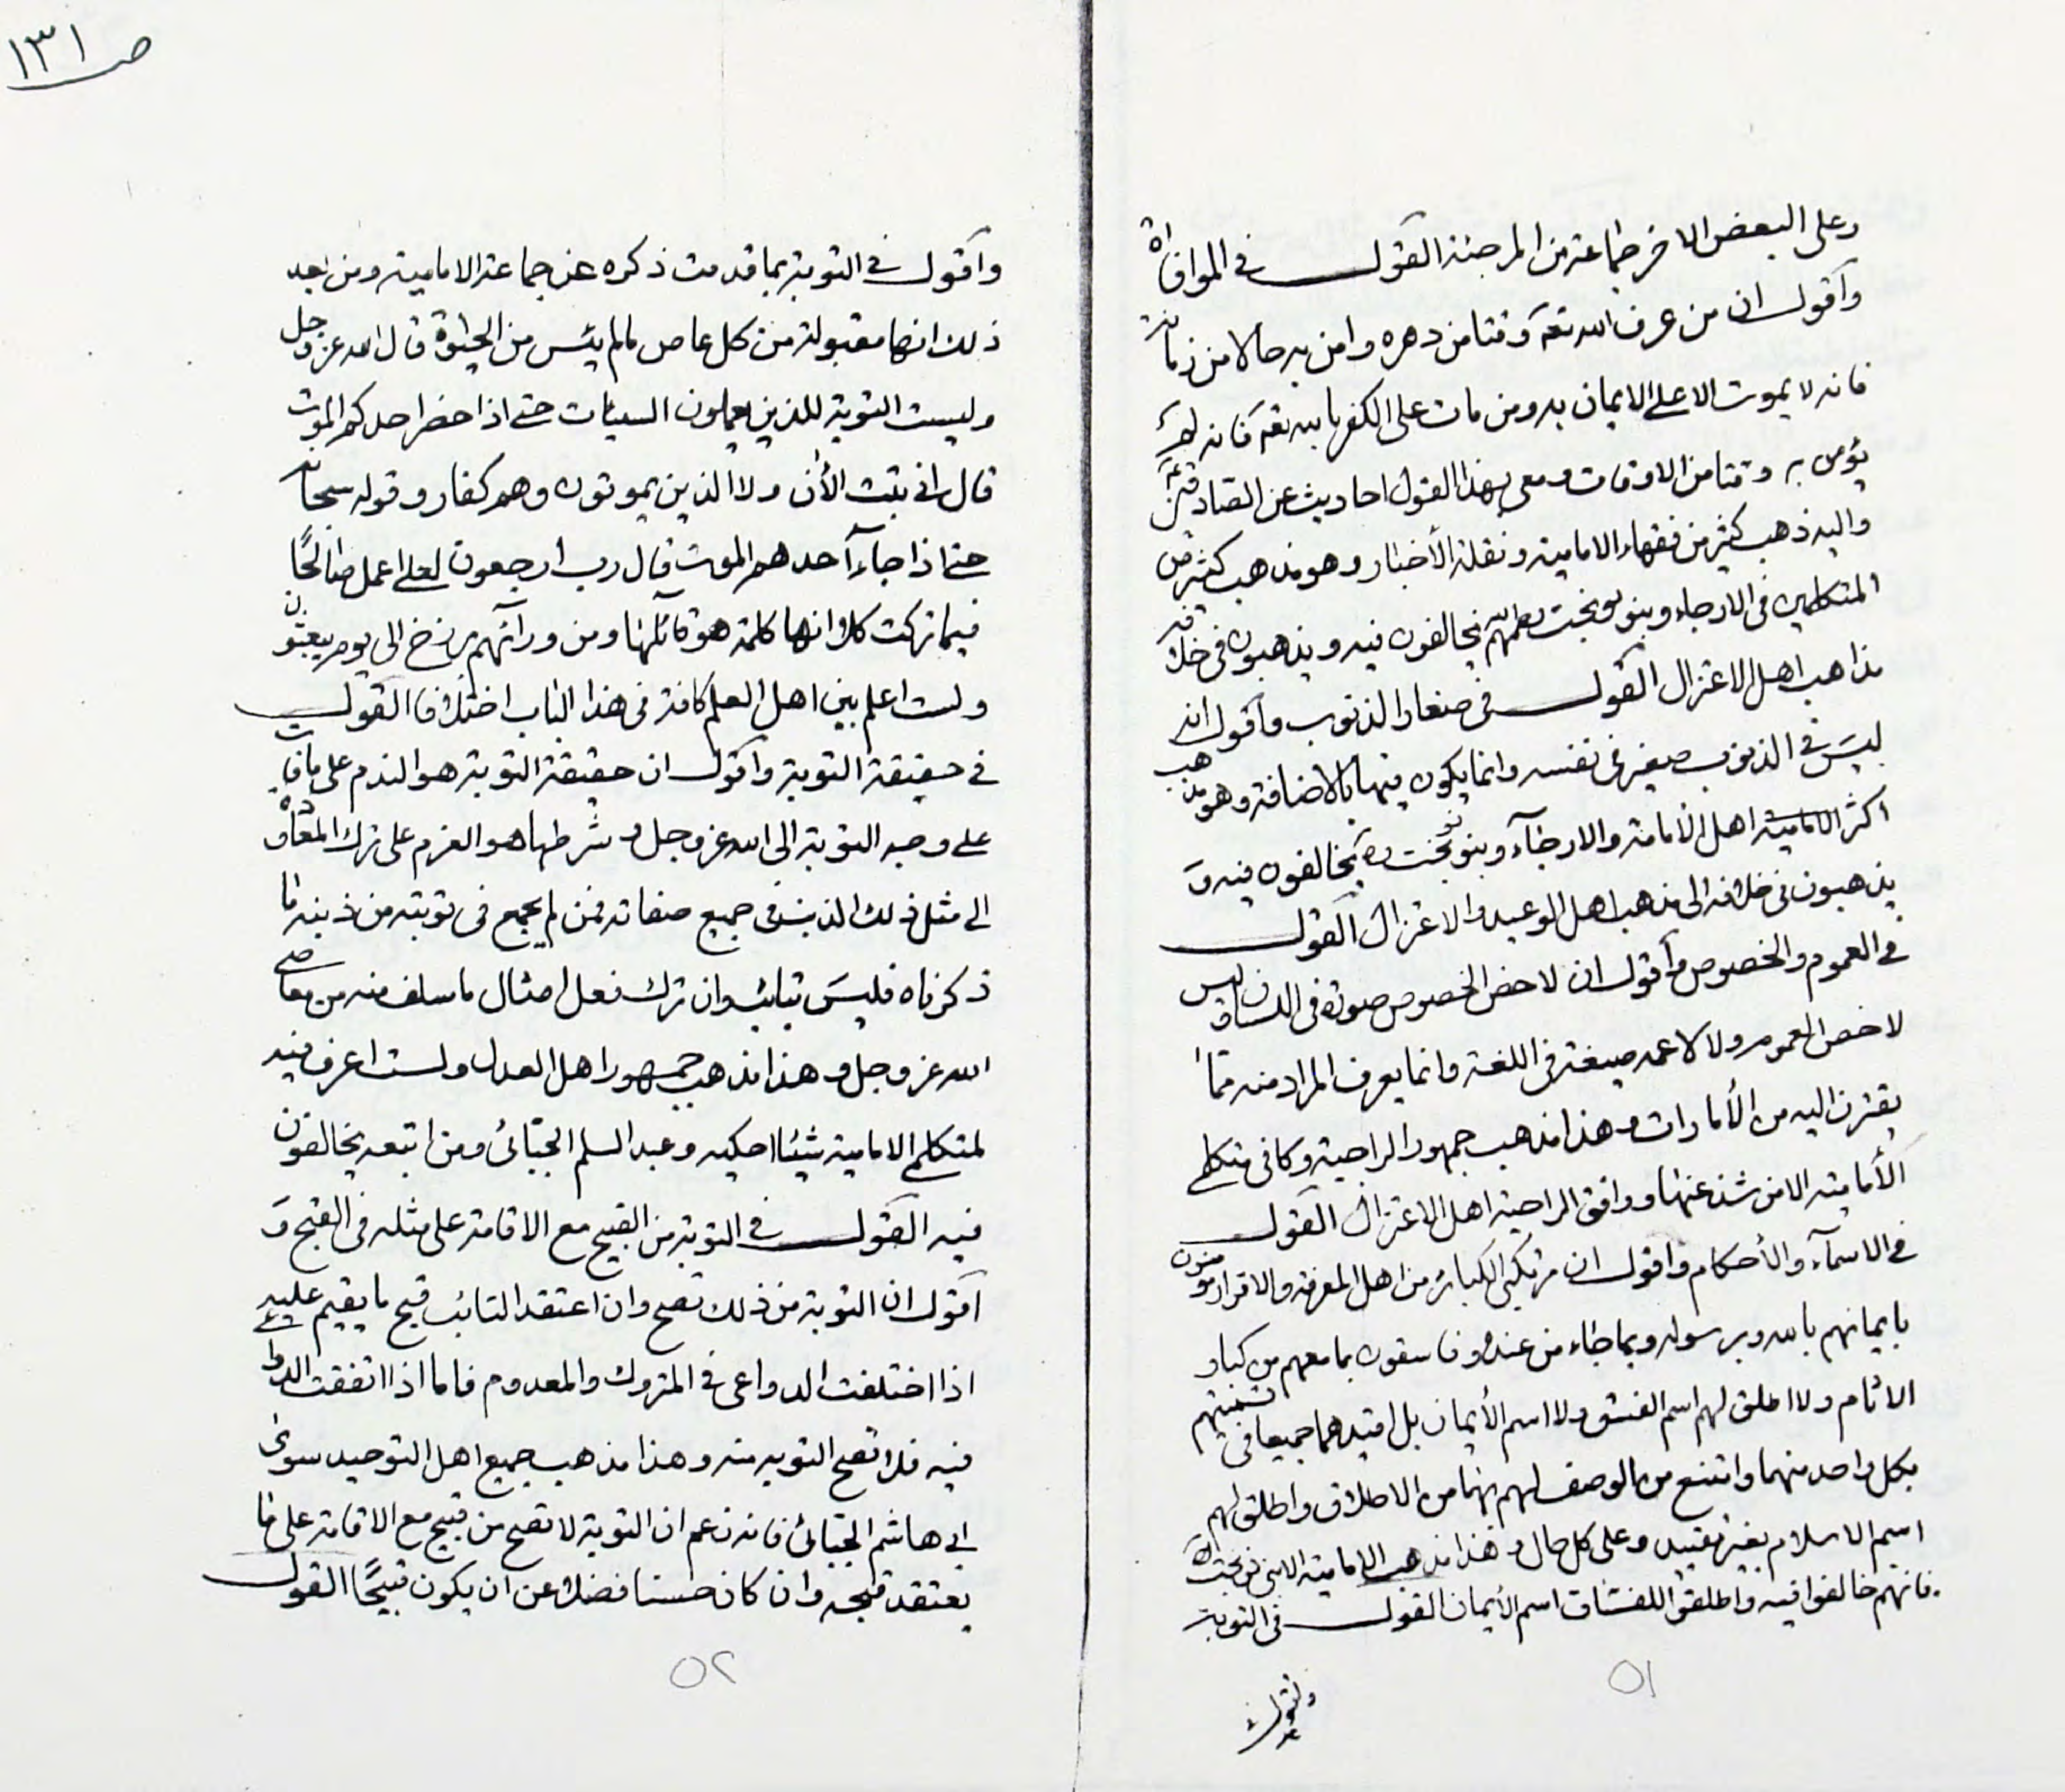 ص ١٣١
وعلى البعض الاخر جماعة من المرجئة القول في الموافاة
واقول ان من عرف الله تعه وقتا من دهره وامن به حالا من زمانه
فانه لا يموت الا على الايمان به ومن مات على الكفر بالله تعه فانه لم
يؤمن به وقتا من الاوقات ومعى بهذا القول احاديث عن الصادقين
واليه ذهب كثير من فقهاء الامامية ونقلة الأخبار وهو مذهب كثير من
المتكلمين في الارجاء وبنو نوبخت يخالفون فيه ويذهبون في خلافه
مذاهب اهل الاعتزال القول في صغار الذنوب واقول انه
ليس في الذنوب صغير في نفسه وانما يكون فيها بالاضافة وهو مذهب
اكثر الامامية اهل الامامة والارجاء وبنو نوبخت ره يخالفون فيه و
يذهبون في خلافه الى مذهب اهل الوعيد والاعتزال القول
في العموم والخصوص واقول ان لاخص الخصوص صورة في اللسان وليس
لاخص العموم ولا لاعمه صيغة في اللغة وانما يعرف المراد منه بما
يقترن اليه من الأمارات وهذا مذهب جمهور الراجية وكافى متكلمى
الأمامية الا من شذ عنها ووافق الراجية اهل الاعتزال القول
في الاسماء والأحكام واقول ان مرتكبى الكبائر من اهل المعرفة والاقرار مؤمنون
بايمانهم بالله وبرسوله وبما جاء من عنده وفاسقون بما معهم من كبائر
الاثام ولا اطلق لهم اسم الفسق ولا اسم الأيمان بل اقيدهما جميعا في تسميتهم
بكل واحد منهما وامتنع من الوصف لهم بهما من الاطلاق واطلق لهم
اسم الاسلام بغير تقييد وعلى كل حال وهذا مذهب الامامية الا بنى نوبخت ره
فانهم خالفوا فيه واطلقوا للفساق اسم الأيمان القول في التوبة
واقول
٥١
واقول في التوبة بما قدمت ذكره عن جماعة الامامية ومن بعد
ذلك انها مقبولة من كل عاص ما لم يئس من الحيوة قال الله عز وجل
وليست التوبة للذين يعملون السيئات حتى اذا حضر احدكم الموت
قال انى تبت الأن ولا الذين يموتون وهم كفار وقوله سبحانه
حتى اذا جاء احدهم الموت قال رب ارجعون لعلى اعمل صالحًا
فيما تركت كلا انها كلمة هو قائلها ومن ورائهم برزخ الى يوم يبعثون
ولست اعلم بين اهل العلم كافة في هذا الباب اختلافا القول
في حقيقة التوبة واقول ان حقيقة التوبة هو الندم على ما فات
على وجه التوبة الى الله عز وجل وشرطها هو العزم على ترك المعاودة
الى مثل ذلك الذنب في جميع صفاته فمن لم يجمع في توبته من ذنبه ما
ذكرناه فليس بتائب وان ترك فعل امثال ما سلف منه من معاصى
الله عز وجل وهذا مذهب جمهور اهل العدل ولست اعرف فيه
لمتكلمى الامامية شيئا احكيه وعبد السلم الجبائى ومن اتبعه يخالفون
فيه القول في التوبة من القبيح مع الاقامة على مثله في القبح و
اقول ان التوبة من ذلك تصح وان اعتقد التائب قبح ما يقيم عليه
اذا اختلفت الدواعى في المتروك والمعدوم فاما اذا اتفقت الدواعى
فيه فلا تصح التوبة منه وهذا مذهب جميع اهل التوحيد سوى
ابى هاشم الجبائى فانه زعم ان التوبة لا تصح من قبيح مع الاقامة على ما
يعتقد قبحه وان كان حسنا فضلا عن ان يكون قبيحًا القول
٥٢